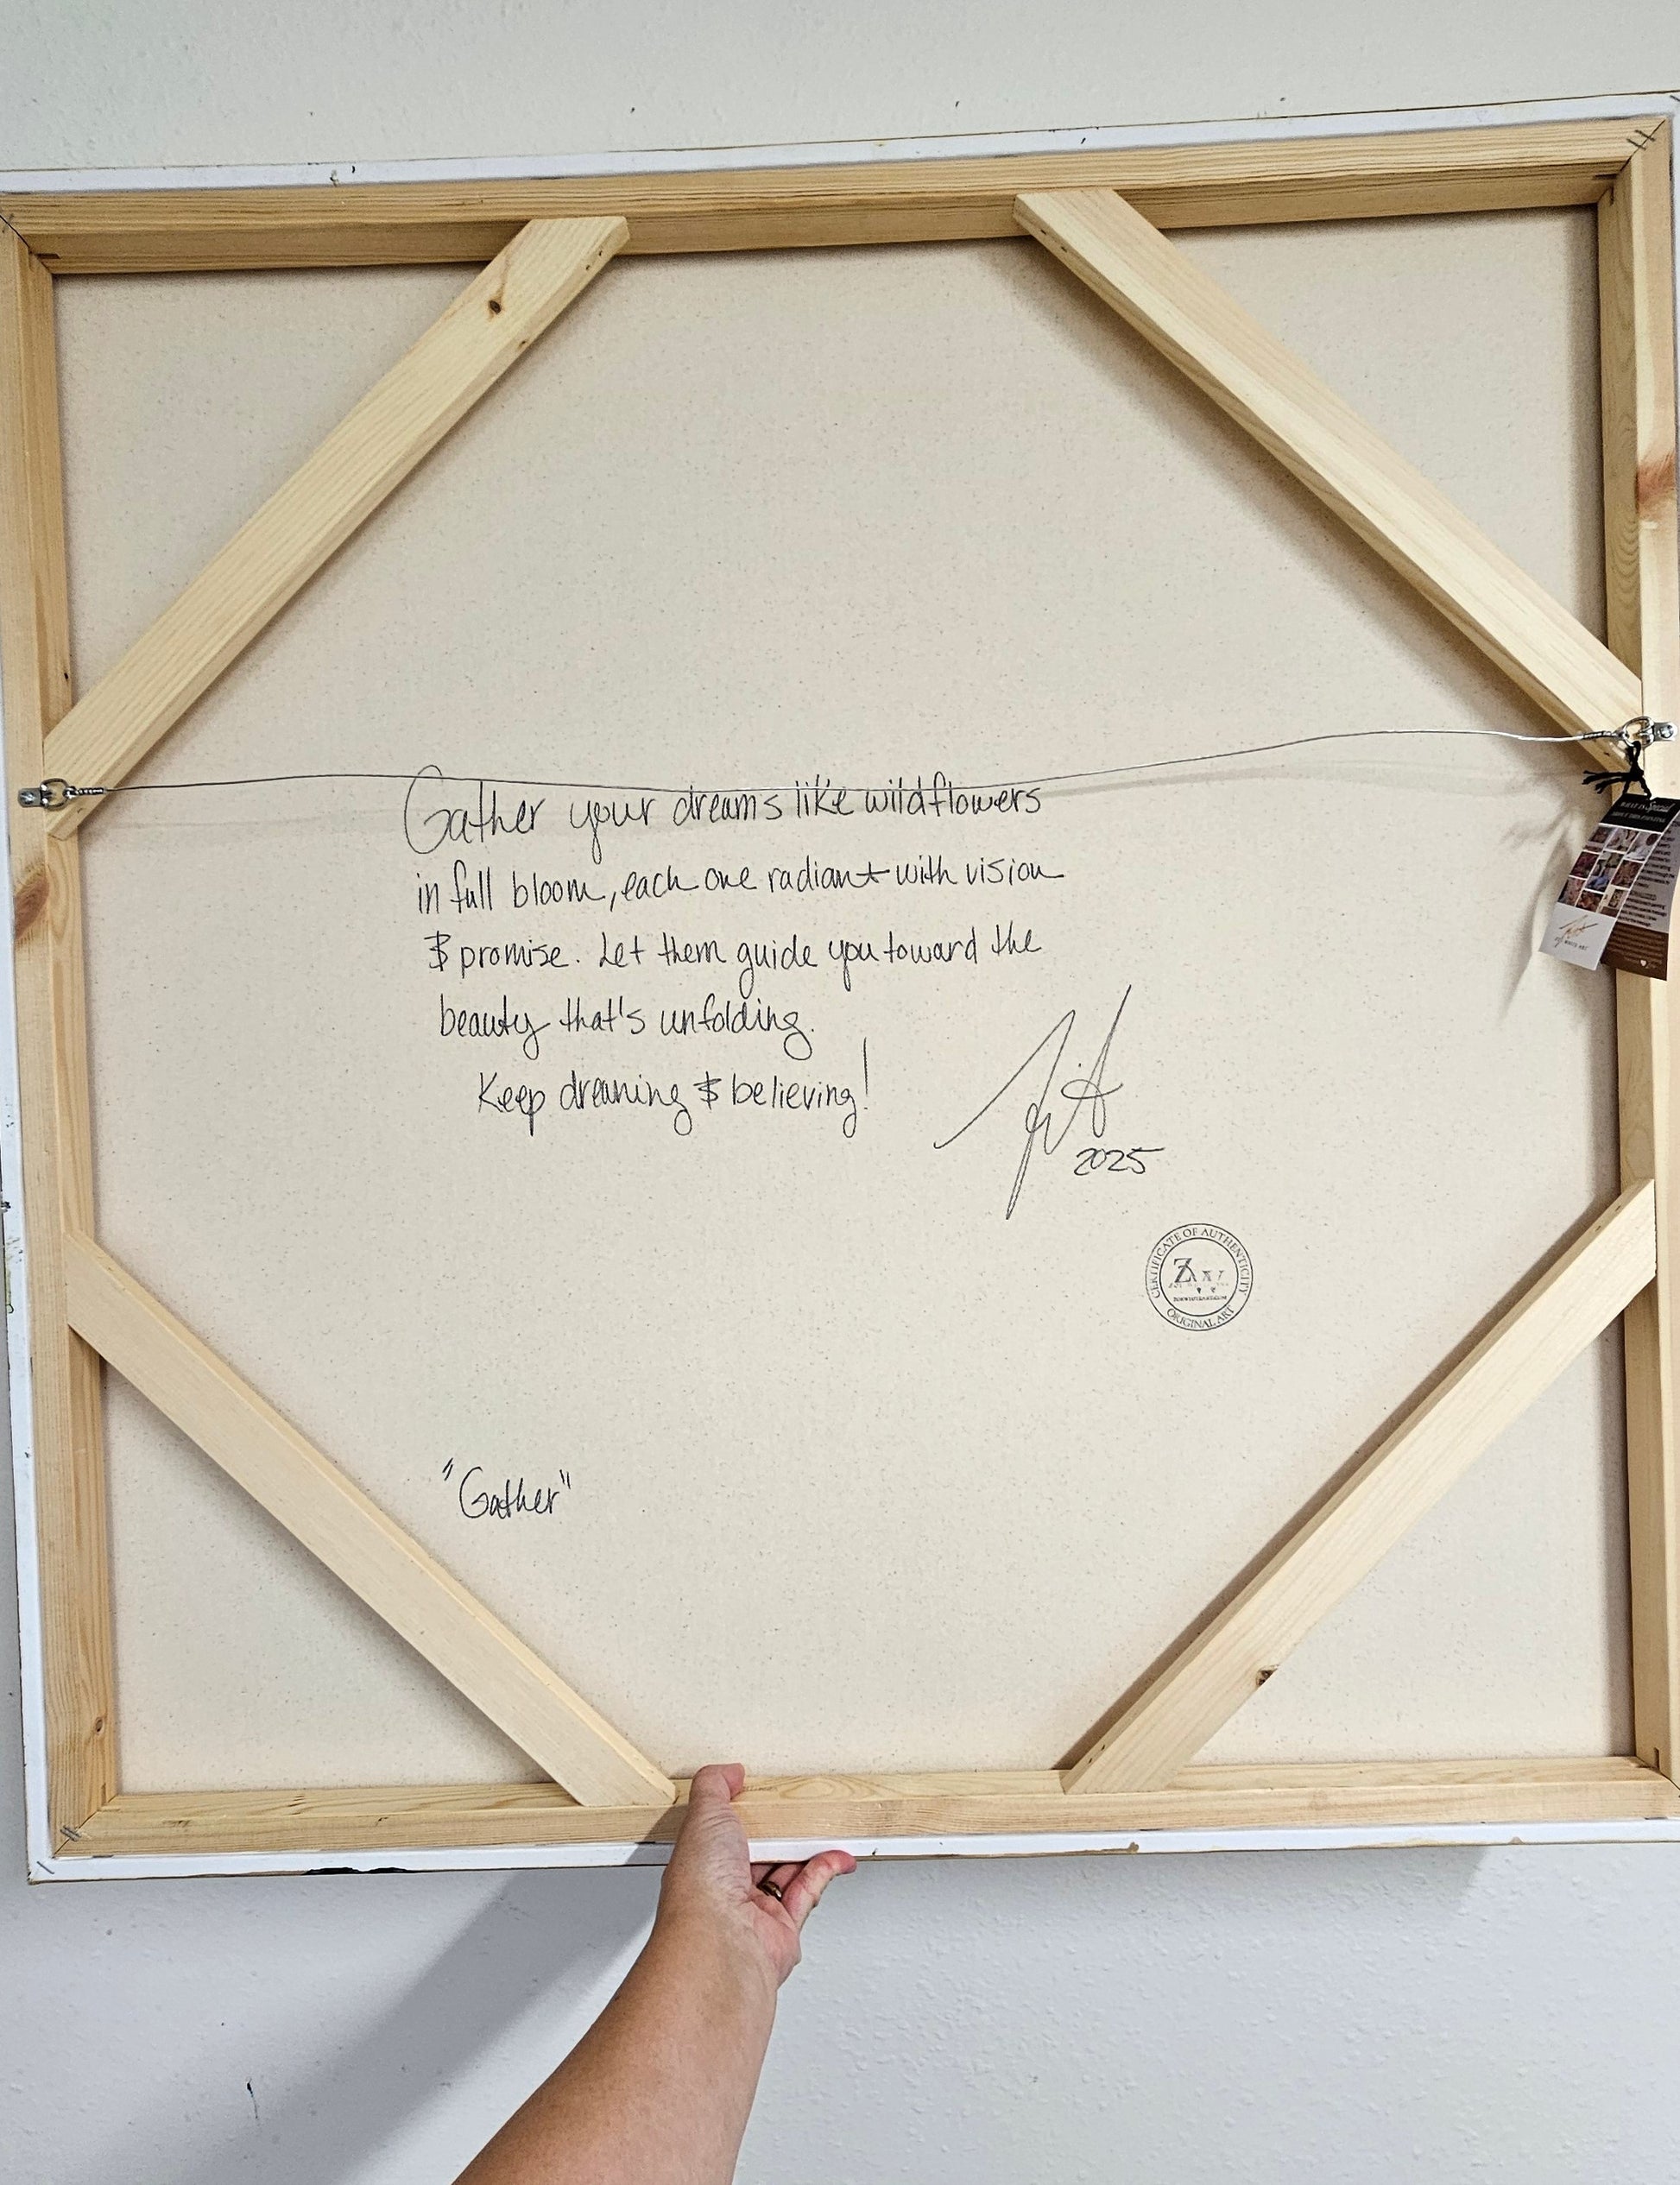 Gather your dreams like wildflowers
in full bloom, each one radiant with vision
& promise. Let them guide you toward the
beauty that's unfolding.
Keep dreaming & believing!
2025
CERTIFICATE OF AUTHENTICITY
ORIGINAL ART
"Gather"
WHAT IS Special
ABOUT THIS PAINTING
WHITE ART